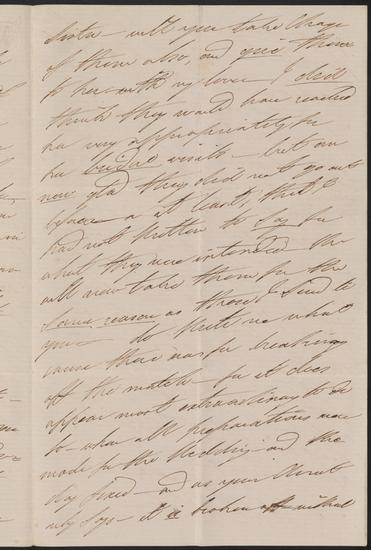 Sister - will you take charge
of them also, and give them
to her with my love - I did
think they would have reached
her very appropriately for
her bridal visits - but am
now glad they did not go out
before - or at least, that I
had not written to say for
what they were intended She
will now take them for the
same reason as those I send to
you - do write me what
cause there was for breaking
off the match - for it does
appear most extraordinary to do
so when all preparations were
made for the Wedding - and the
day fixed - and as your
only says - it is broken off